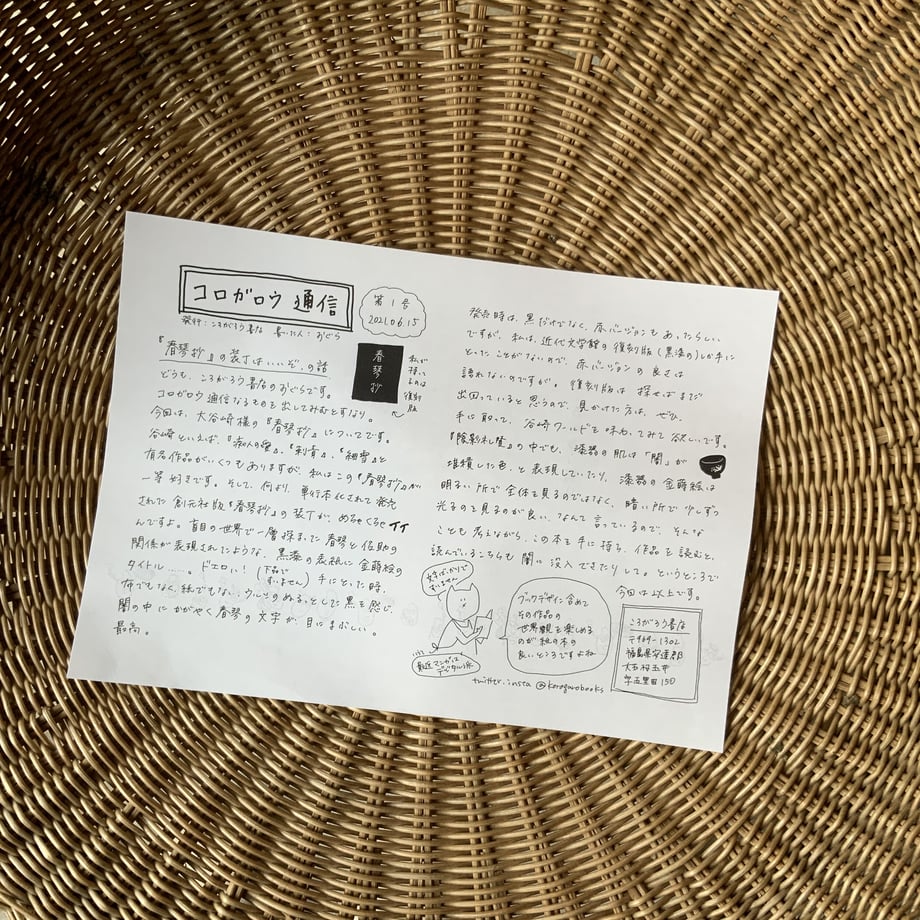 コロガロウ 通信
第1号
2021.06.15
発行：ころがろう書店 書いた人：おぐら
『春琴抄』の装丁はいいぞ。の話
春琴抄
私が
持って
いるのは
復刻
版
どうも、ころがろう書店のおぐらです。
コロガロウ通信なるものを出してみむとすなり。
今回は、大谷崎様の『春琴抄』についてです。
谷崎といえば、『痴人の愛』、『刺青』、『細雪』と
有名作品がいくつもありますが、私はこの『春琴抄』が
一等好きです。そして、何より、単行本化されて発売
された創元社版『春琴抄』の装丁が、めちゃくちゃイイ
んですよ。盲目の世界で一層深まった春琴と佐助の
関係が表現されたような、黒漆の表紙に金蒔絵の
タイトル……。ドエロい！（下品で
すいません）手にとった時、
布でもなく紙でもない、ウルシのぬるっとした黒を感じ
闇の中にかがやく春琴の文字が、目にまぶしい。
最高。
発売時は、黒だけでなく、赤バージョンもあったらしい
ですが、私は、近代文学館の復刻版（黒漆の）しか手に
とったことがないので、赤バージョンの良さは
語れないのですが。復刻版は探せばまだ
出回っていると思うので、見かけた方は、ぜひ、
手に取って、谷崎ワールドを味わってみて欲しいです。
『陰影礼賛』の中でも、漆器の肌は「闇」が
堆積した色、と表現していたり、漆器の金蒔絵は
明るい所で全体を見るのではなく、暗い所で少しずつ
光るのを見るのが良い、なんて言っているので、そんな
ことも考えながら、この本を手に持ち、作品を読むと、
読んでいるこちらも闇に没入できたりして。というところで
今回は以上です。
文字ばかりで
すいません
最近マンガは
デジタル派
ブックデザイン含めて
その作品の
世界観を楽しめる
のが紙の本の
良いところですよね
ころがろう書店
〒969-1302
福島県安達郡
大玉村玉井
字
150
twitter・insta @korogarobooks